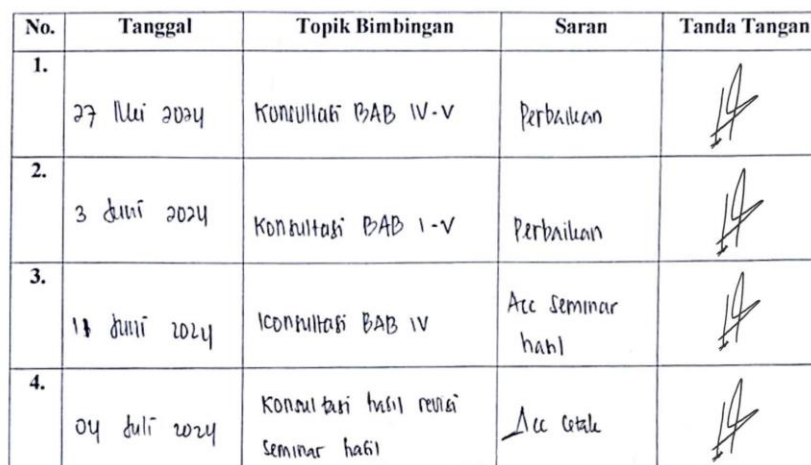 No. Tanggal Topik Bimbingan Saran Tanda Tangan
1.
27 Mei 2024 Konsultasi BAB IV-V Perbaikan
2.
3 Juni 2024 Konsultasi BAB I-V Perbaikan
3.
11 Juni 2024 Konsultasi BAB IV Acc seminar
hasil
4.
04 Juli 2024 Konsultasi hasil revisi Acc Cetak
seminar hasil